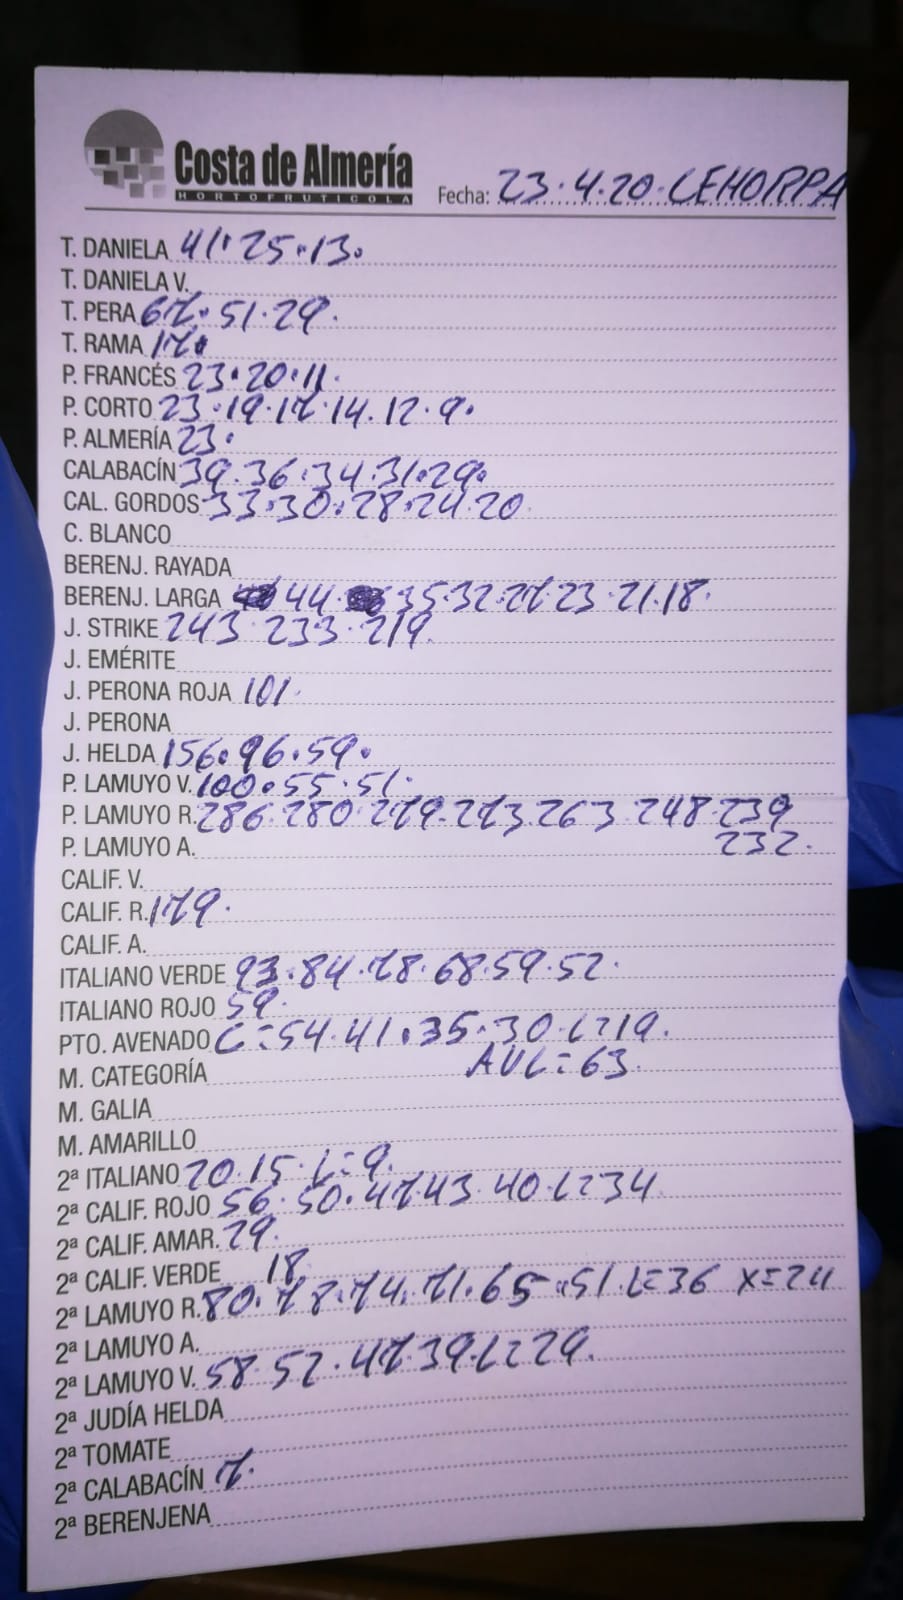 Costa de Almería
HORTOFRUTICOLA
Fecha: 23.4.20. CEHORPA
T. DANIELA 41.25.13.
T. DANIELA V.
T. PERA 67.51.29.
T. RAMA 17.
P. FRANCÉS 23.20.11.
P. CORTO 23.19.17.14.12.9.
P. ALMERÍA 23.
CALABACÍN 39.36.34.31.29.
CAL. GORDOS 33.30.28.24.20
C. BLANCO
BERENJ. RAYADA
BERENJ. LARGA 44. 35.32.27.23.21.18.
J. STRIKE 243.233.219.
J. EMÉRITE
J. PERONA ROJA 101.
J. PERONA
J. HELDA 156.96.59.
P. LAMUYO V. 100.55.51.
P. LAMUYO R. 286.280.279.273.263.248.239
P. LAMUYO A. 232.
CALIF. V.
CALIF. R. 179.
CALIF. A.
ITALIANO VERDE 93.84.78.68.59.52.
ITALIANO ROJO 59.
PTO. AVENADO C=54.41.35.30.L=19.
M. CATEGORÍA AVL=63.
M. GALIA
M. AMARILLO
2ª ITALIANO 20.15.L=9.
2ª CALIF. ROJO 56.50.47.43.40.L=34
2ª CALIF. AMAR. 29.
2ª CALIF. VERDE 18
2ª LAMUYO R. 80.78.74.71.65.51.L=36 X=24
2ª LAMUYO A.
2ª LAMUYO V. 58.52.47.39.L=29.
2ª JUDÍA HELDA
2ª TOMATE
2ª CALABACÍN 7.
2ª BERENJENA